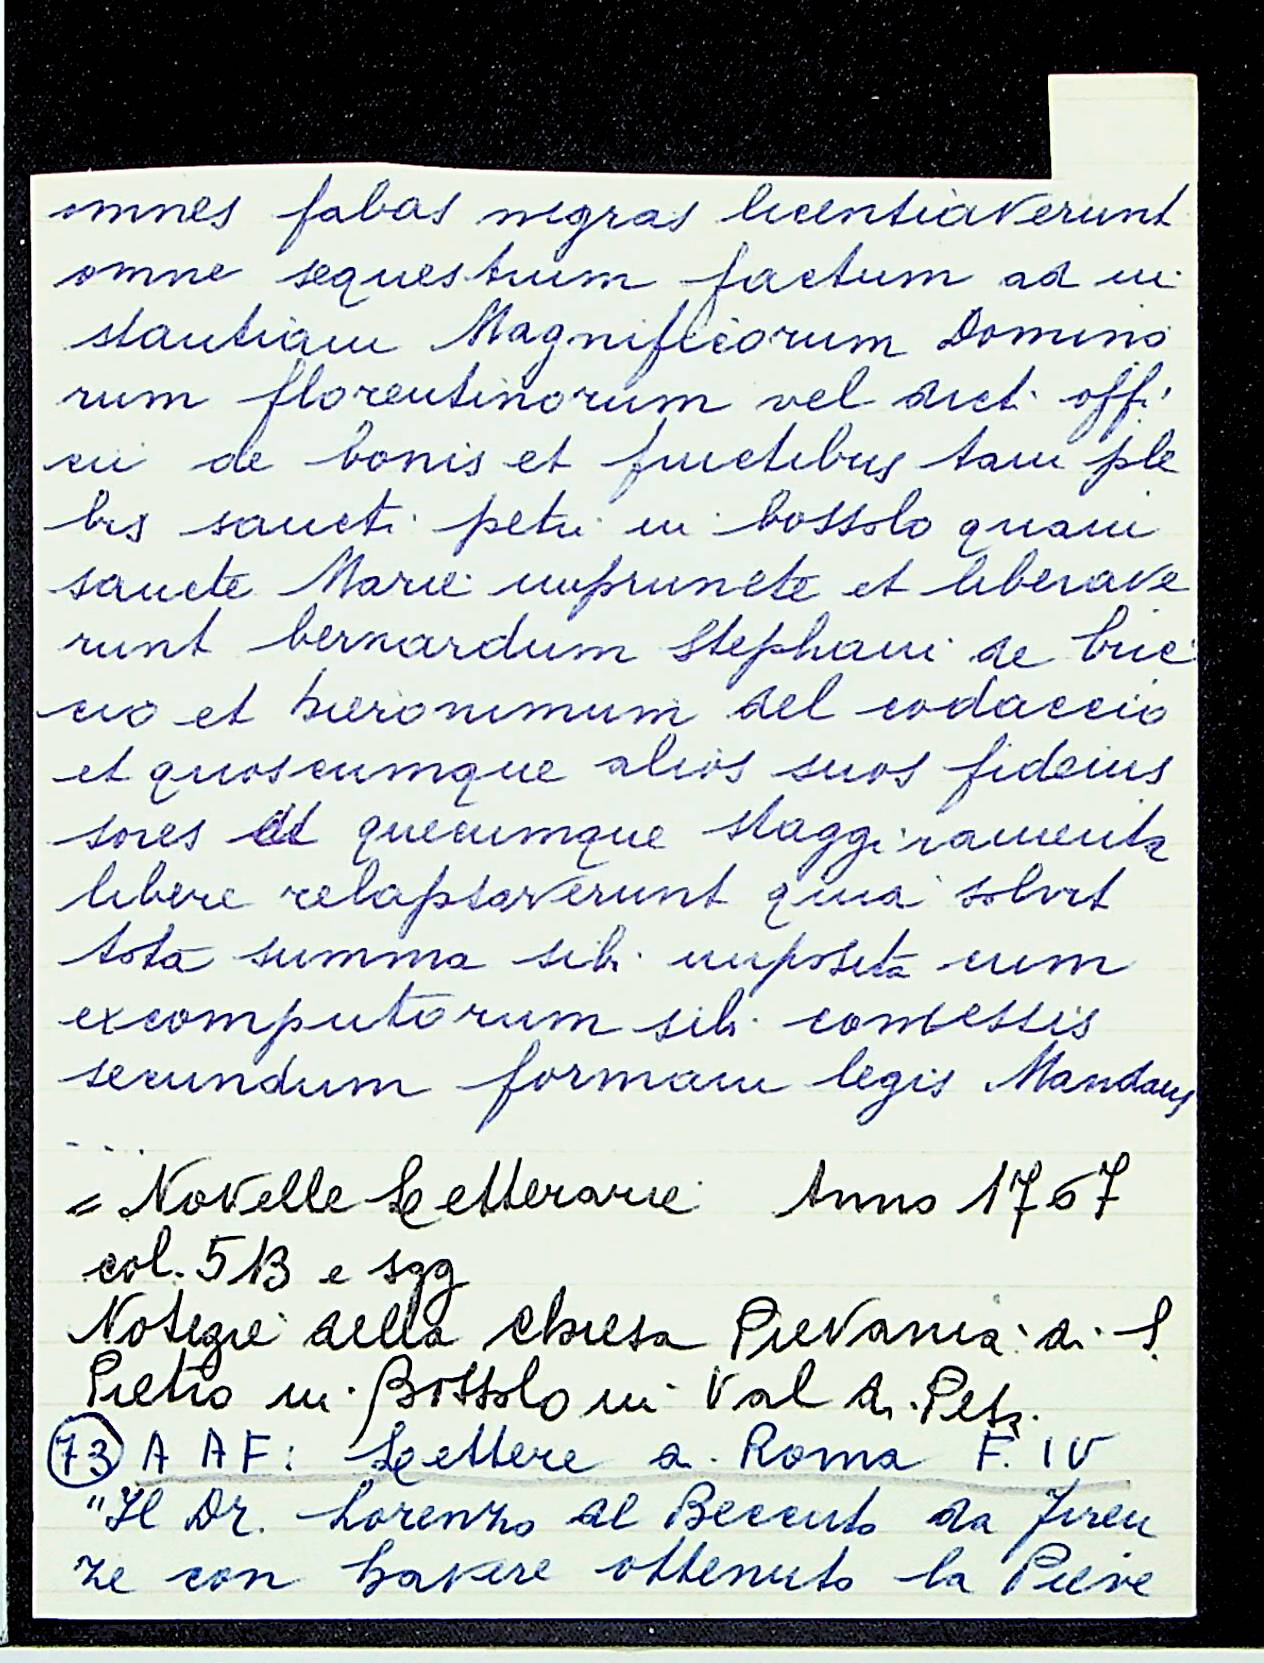 omnes fabas negras licentiaverunt
omne sequestrum factum ad in
stantiam Magnificorum Domino
rum florentinorum vel dicti offi
cii de bonis et fructibus tam ple
bis sancti petri in bossolo quam
sancte Marie imprunete et liberave
runt bernardum Stephani de bric
cio et hieronimum del codaccio
et quoscumque alios suos fideius
sores et quecumque staggiramenta
libere relapsaverunt quia solvit
tota summa sibi imposita cum
excomputorum sibi comcessis
secundum formam legis Mandans
....
= Novelle Letterarie Anno 1767
col. 513 e sgg
Notizie della chiesa Pievania di S.
Pietro in Bossolo in Val di Pesa.
73 A A F: Lettere a Roma F. IV
"Il Dr. Lorenzo al Beccuto da Firen
ze con havere ottenuto la Pieve